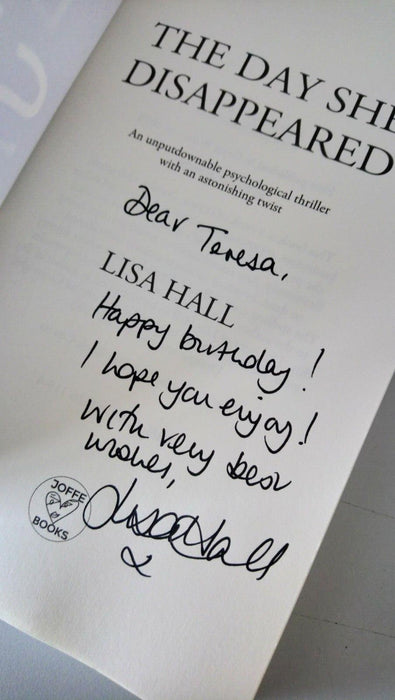 THE DAY SHE
DISAPPEARED
An unputdownable psychological thriller
with an astonishing twist
Dear Teresa,
LISA HALL
Happy birthday!
I hope you enjoy!
With very best
wishes,
Lisa Hall
x
JOFFE
BOOKS